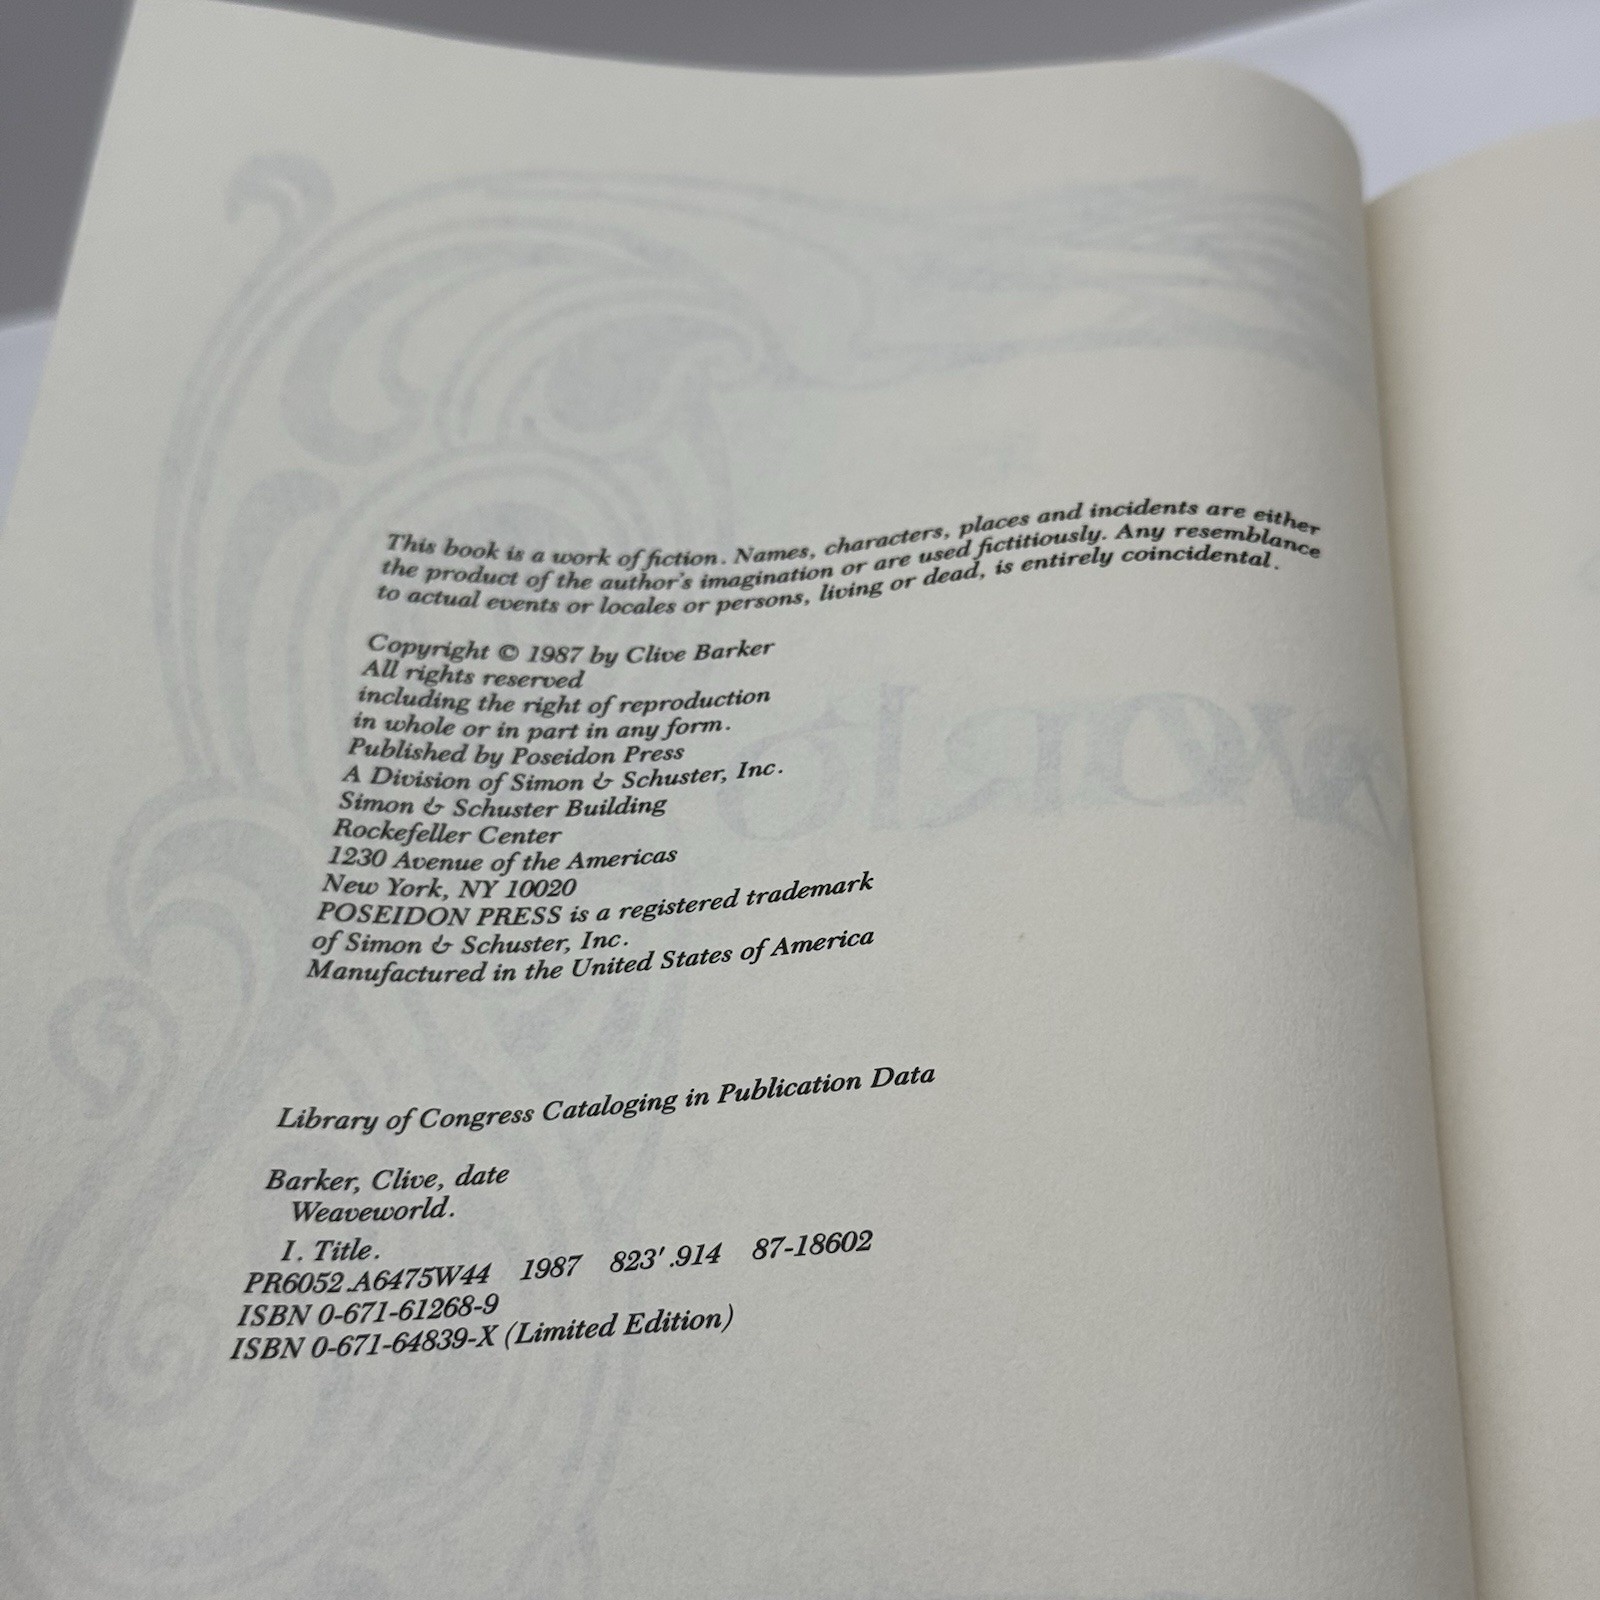 This book is a work of fiction. Names, characters, places and incidents are either
the product of the author's imagination or are used fictitiously. Any resemblance
to actual events or locales or persons, living or dead, is entirely coincidental.
Copyright © 1987 by Clive Barker
All rights reserved
including the right of reproduction
in whole or in part in any form.
Published by Poseidon Press
A Division of Simon & Schuster, Inc.
Simon & Schuster Building
Rockefeller Center
1230 Avenue of the Americas
New York, NY 10020
POSEIDON PRESS is a registered trademark
of Simon & Schuster, Inc.
Manufactured in the United States of America
Library of Congress Cataloging in Publication Data
Barker, Clive, date
Weaveworld.
I. Title.
PR6052.A6475W44 1987 823'.914 87-18602
ISBN 0-671-61268-9
ISBN 0-671-64839-X (Limited Edition)